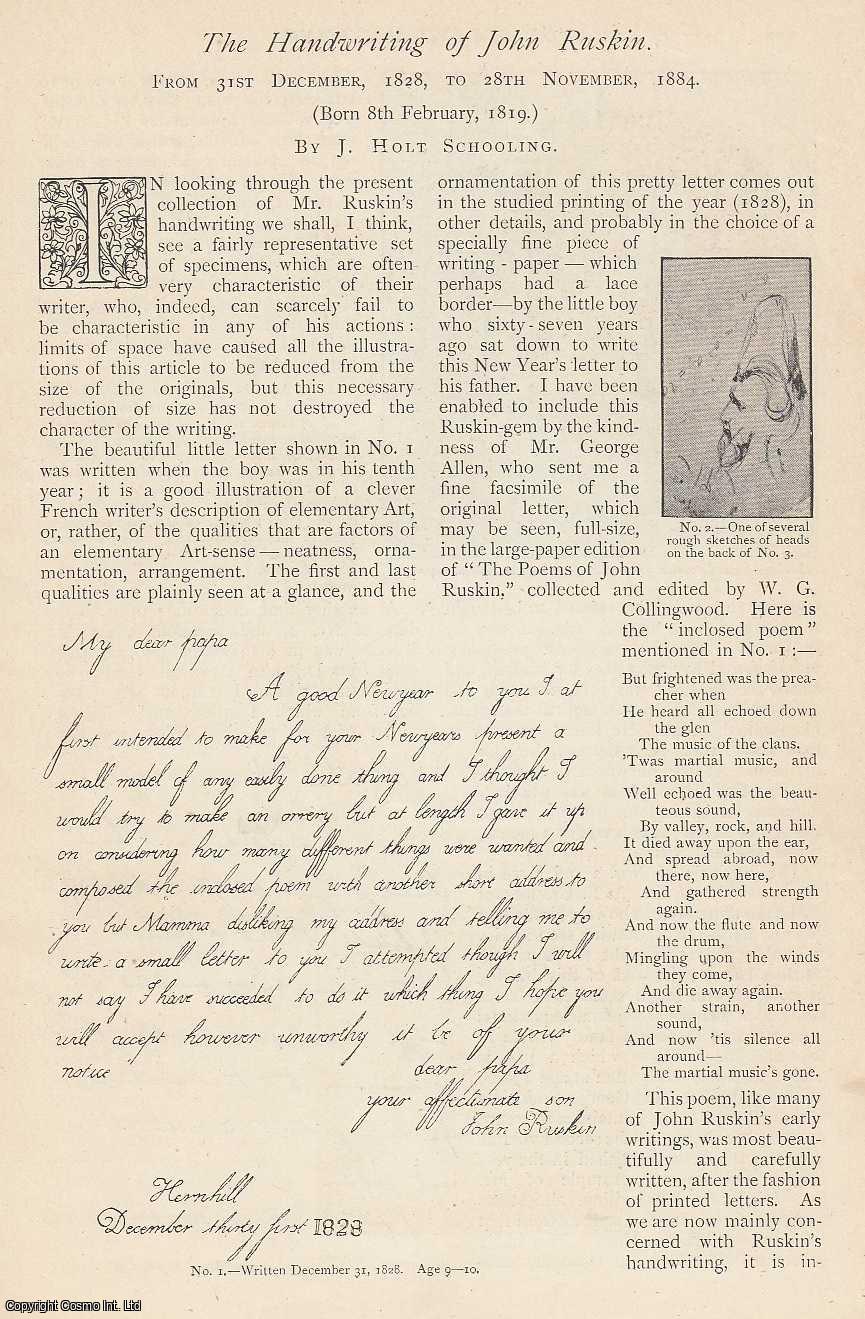 The Handwriting of John Ruskin.
FROM 31ST DECEMBER, 1828, TO 28TH NOVEMBER, 1884.
(Born 8th February, 1819.)
BY J. HOLT SCHOOLING.
IN looking through the present
collection of Mr. Ruskin's
handwriting we shall, I think,
see a fairly representative set
of specimens, which are often
very characteristic of their
writer, who, indeed, can scarcely fail to
be characteristic in any of his actions :
limits of space have caused all the illustra-
tions of this article to be reduced from the
size of the originals, but this necessary
reduction of size has not destroyed the
character of the writing.
The beautiful little letter shown in No. 1
was written when the boy was in his tenth
year ; it is a good illustration of a clever
French writer's description of elementary Art,
or, rather, of the qualities that are factors of
an elementary Art-sense — neatness, orna-
mentation, arrangement. The first and last
qualities are plainly seen at a glance, and the
ornamentation of this pretty letter comes out
in the studied printing of the year (1828), in
other details, and probably in the choice of a
specially fine piece of
writing - paper — which
perhaps had a lace
border—by the little boy
who sixty-seven years
ago sat down to write
this New Year's letter to
his father. I have been
enabled to include this
Ruskin-gem by the kind-
ness of Mr. George
Allen, who sent me a
fine facsimile of the
original letter, which
may be seen, full-size,
in the large-paper edition
of "The Poems of John
Ruskin," collected and edited by W. G.
Collingwood. Here is
the "inclosed poem"
mentioned in No. 1 :—
No. 2.—One of several
rough sketches of heads
on the back of No. 3.
My dear papa
A good Newyear to you I at
first intended to make for your Newyears present a
small model of any easily done thing and I thought I
would try to make an orrery but at length I gave it up
on considering how many different things were wanted and
composed the inclosed poem with another short address to
you but Mamma disliking my address and telling me to
write a small letter to you I attempted though I will
not say I have succeeded to do it which thing I hope you
will accept however unworthy it be of your
notice dear papa
your affectionate son
John Ruskin
Hernhill
December thirty first 1828
No. 1.—Written December 31, 1828. Age 9—10.
But frightened was the prea-
cher when
He heard all echoed down
the glen
The music of the clans.
'Twas martial music, and
around
Well echoed was the beau-
teous sound,
By valley, rock, and hill.
It died away upon the ear,
And spread abroad, now
there, now here,
And gathered strength
again.
And now the flute and now
the drum,
Mingling upon the winds
they come,
And die away again.
Another strain, another
sound,
And now 'tis silence all
around—
The martial music's gone.
This poem, like many
of John Ruskin's early
writings, was most beau-
tifully and carefully
written, after the fashion
of printed letters. As
we are now mainly con-
cerned with Ruskin's
handwriting, it is in-
Copyright Cosmo Int. Ltd